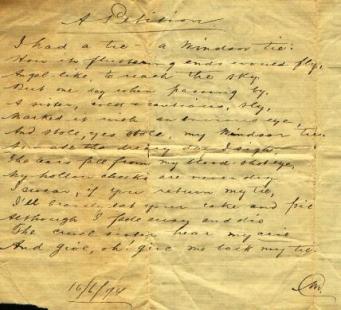 A Petition
I had a tie – a Windsor tie:
How its fluttering ends would fly,
Angel like, to reach the sky.
But one day when passing by,
A sister, cautious, sly,
Marked it with an envious eye,
And stole, yes stole, my Windsor tie.
the dreary day I sigh
The tears fall from my blood shot eye,
My hollow cheeks are never dry
I swear, if you return my tie,
I'll bravely eat your cake and pie
Although I fade away and die
The cruel sister hear my cry
And give, oh! give me back my tie.
16/6/74